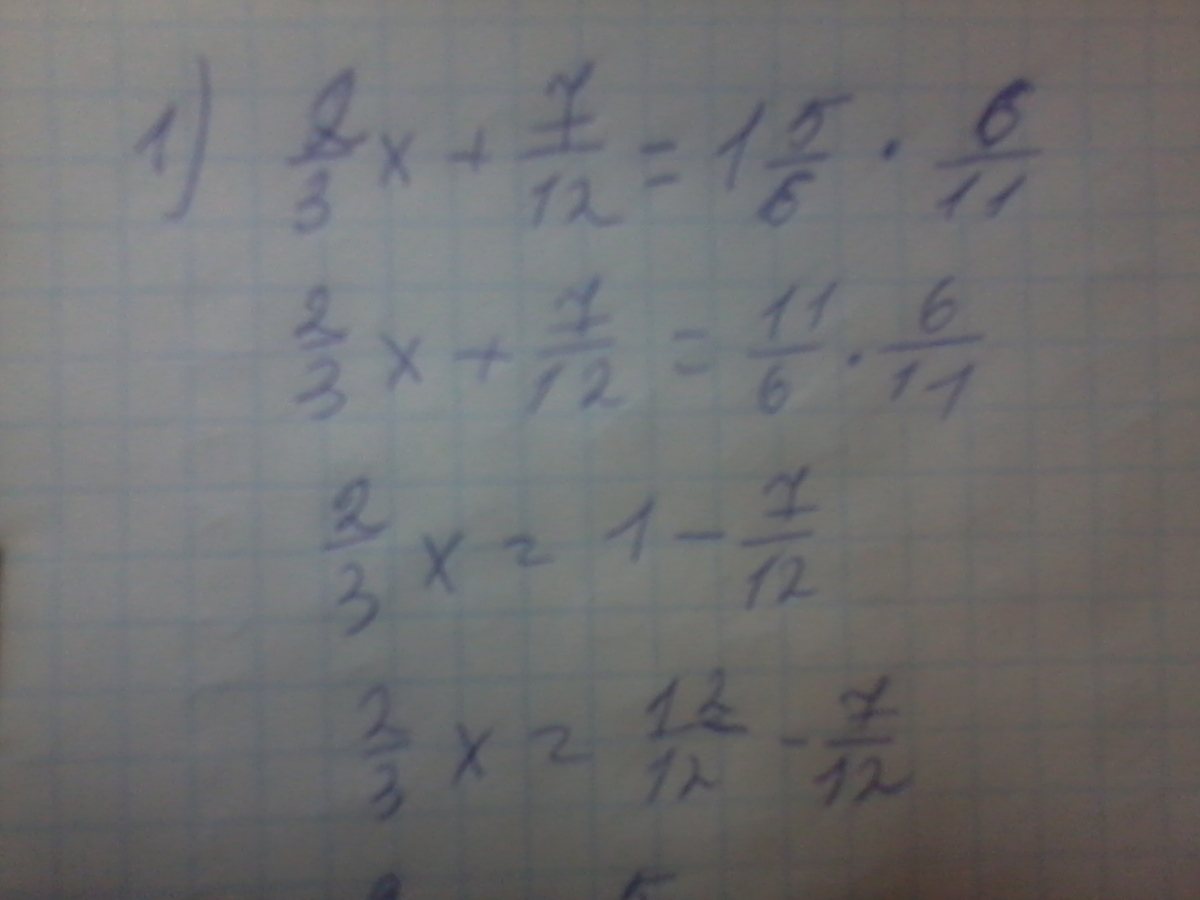 1) 2/3 x + 7/12 = 1 5/6 · 6/11
2/3 x + 7/12 = 11/6 · 6/11
2/3 x = 1 - 7/12
2/3 x = 12/12 - 7/12